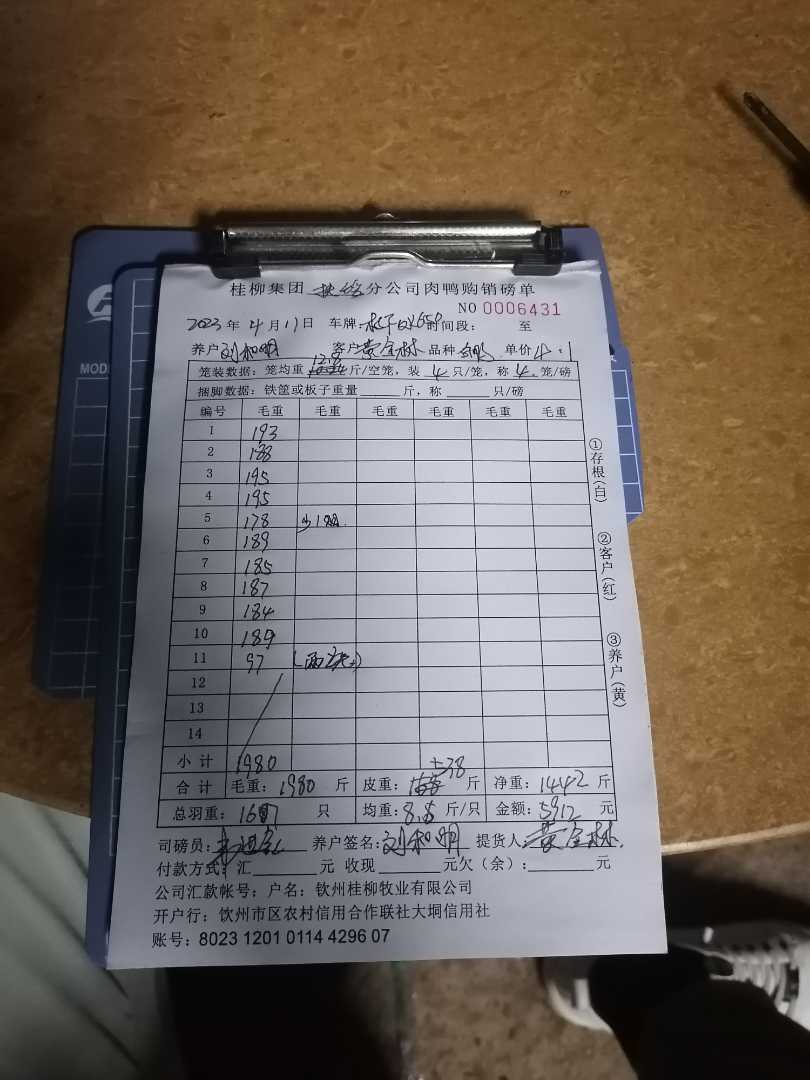 桂柳集团 分公司肉鸭购销磅单
NO 0006431
2023年4月17日 车牌: 时间段: 至
养户 刘和明 客户 黄金林 品种 单价 4.1
笼装数据:笼均重 斤/空笼,装 4 只/笼,称 4 笼/磅
捆脚数据:铁筐或板子重量 斤,称 只/磅
编号 毛重 毛重 毛重 毛重 毛重 毛重
1 193
2 188
3 195
4 195
5 178 少1
6 189
7 185
8 187
9 184
10 189
11 97
12
13
14
小计 1980
合计 毛重:1980 斤 皮重:538 斤 净重:1442 斤
总羽重: 只 均重: 斤/只 金额:5912 元
司磅员: 养户签名:刘和明 提货人:黄金林
付款方式:汇 元 收现 元欠(余): 元
公司汇款帐号:户名:钦州桂柳牧业有限公司
开户行:饮州市区农村信用合作联社大垌信用社
账号:8023 1201 0114 4296 07
①存根(白)
②客户(红)
③养户(黄)
MOD